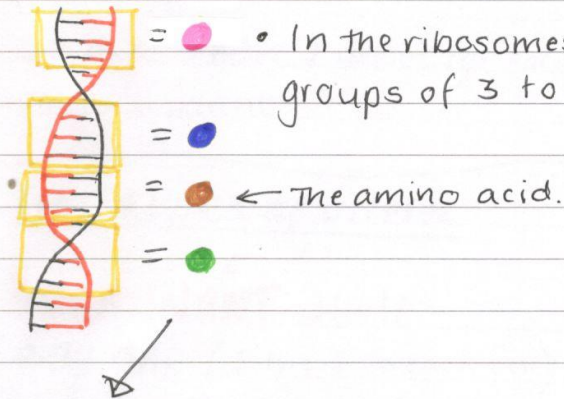 = • In the ribosomes
groups of 3 to
=
= ← The amino acid.
=